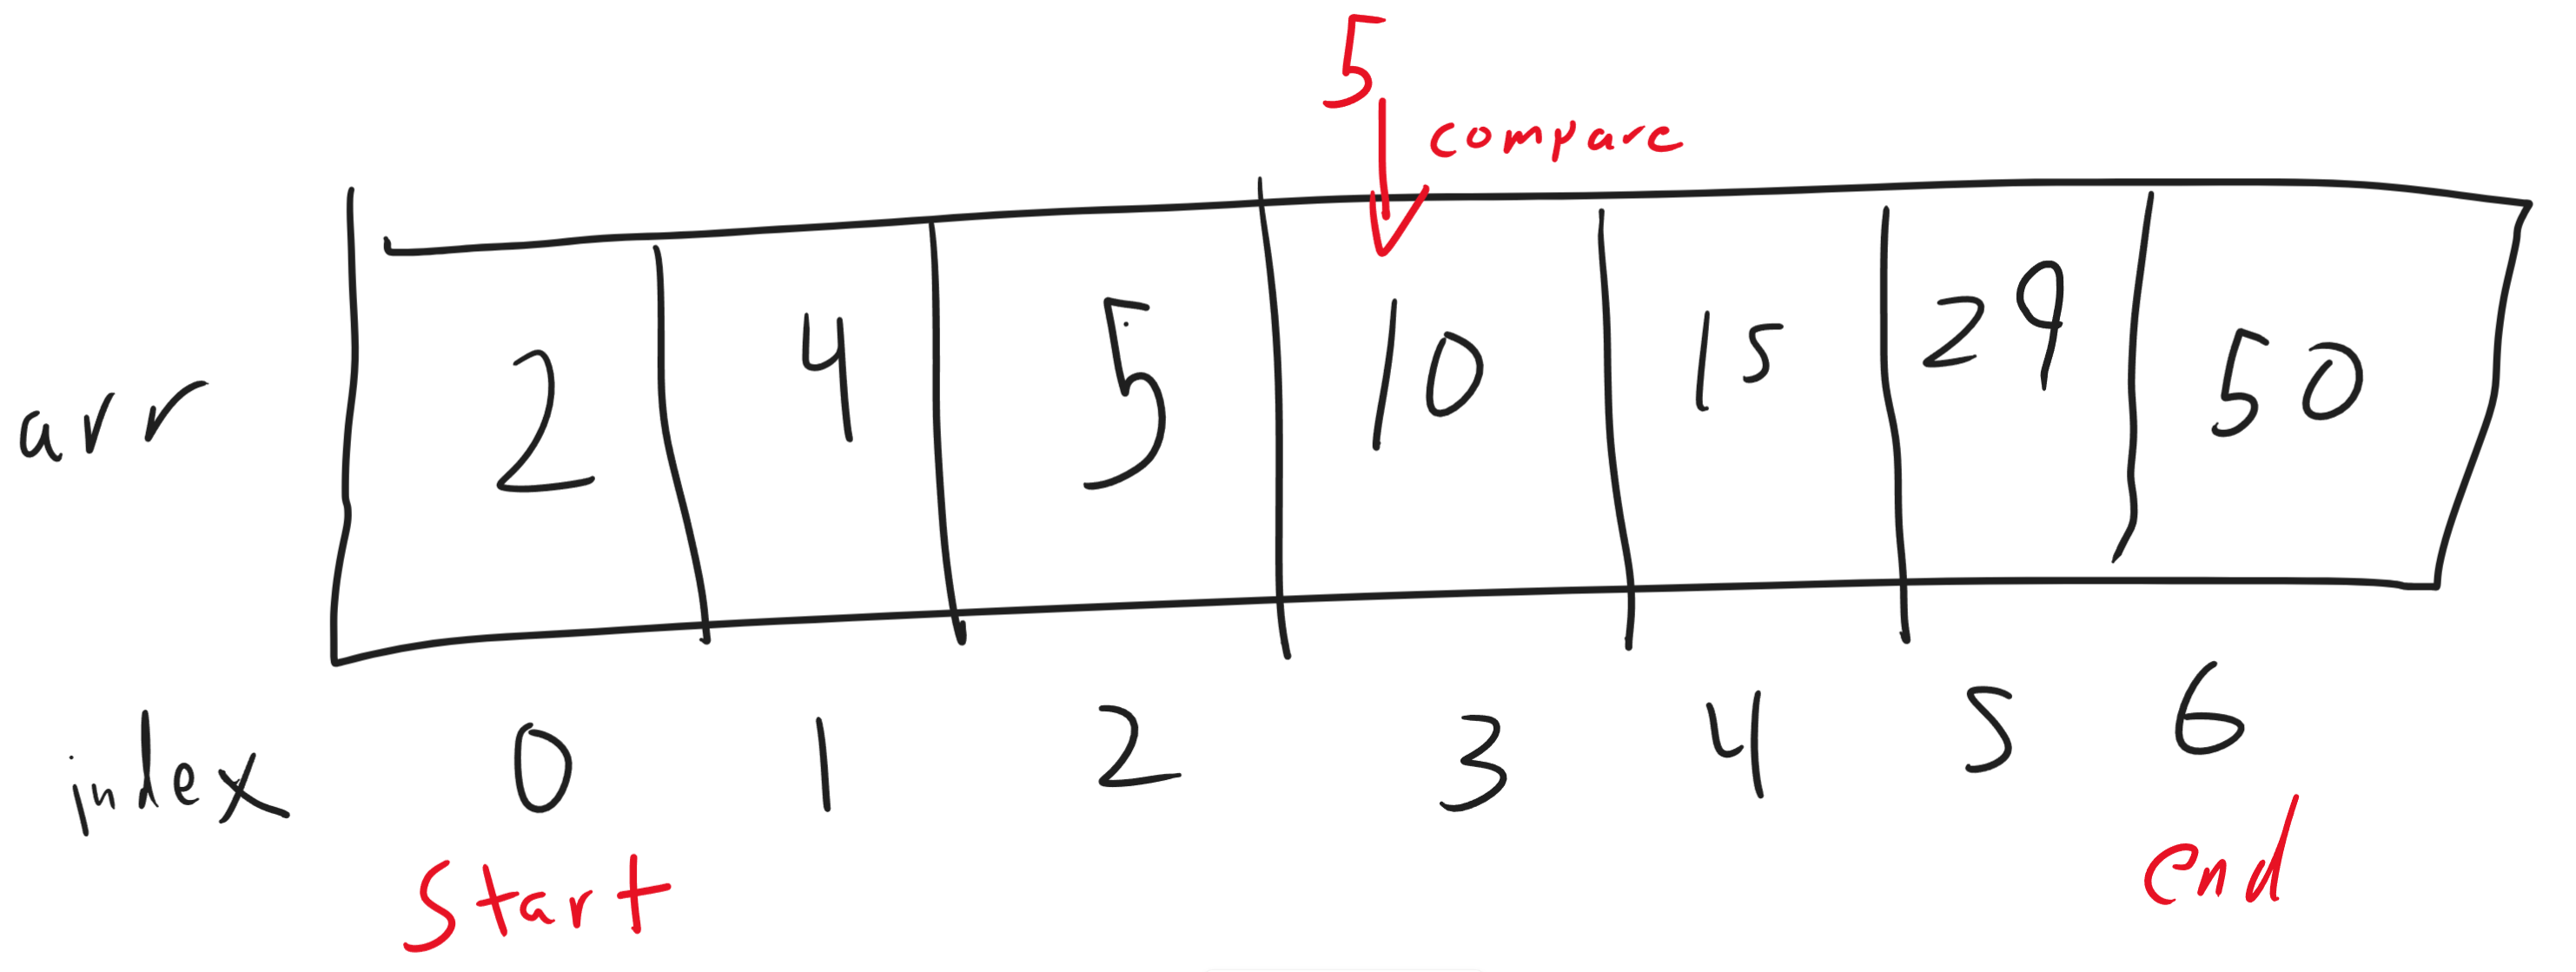 5
compare
arr 2 4 5 10 15 29 50
index 0 1 2 3 4 5 6
start end